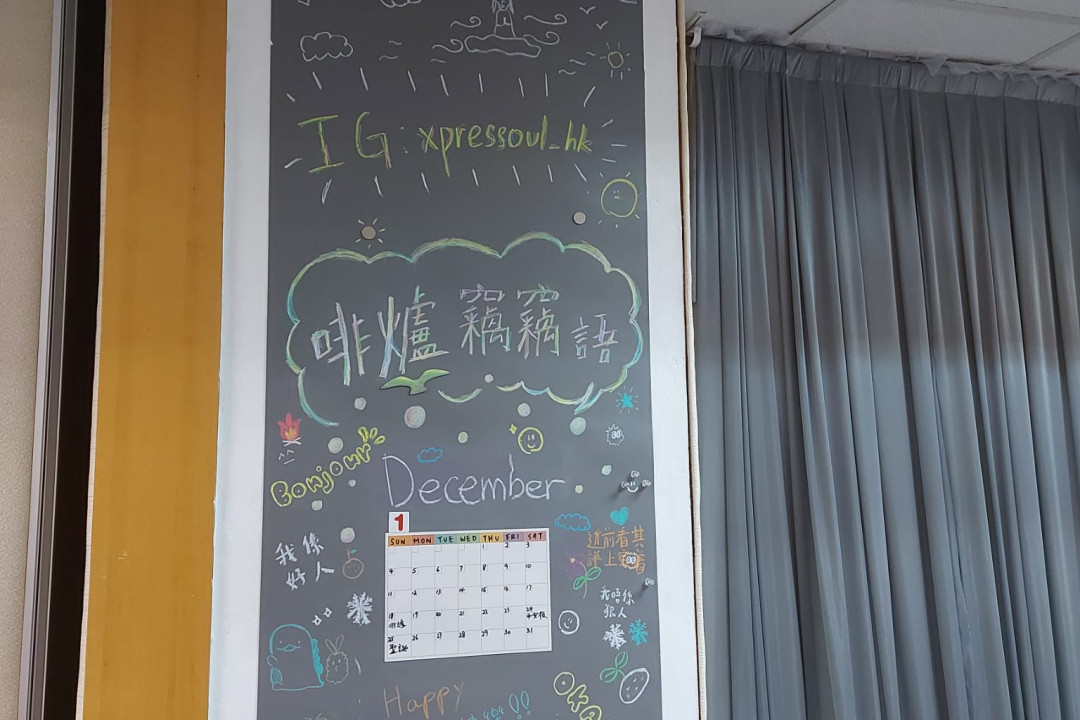 IG: xpressoul_hk
啡爐竊竊語
Bonjour
December
1
SUN MON TUE WED THU FRI SAT
1 2 3
4 5 6 7 8 9 10
11 12 13 14 15 16 17
18 19 20 21 22 23 24
25 26 27 28 29 30 31
聖誕
我係
好人
近前看其
詳上寫着
我唔係
狠人
Happy
OKA